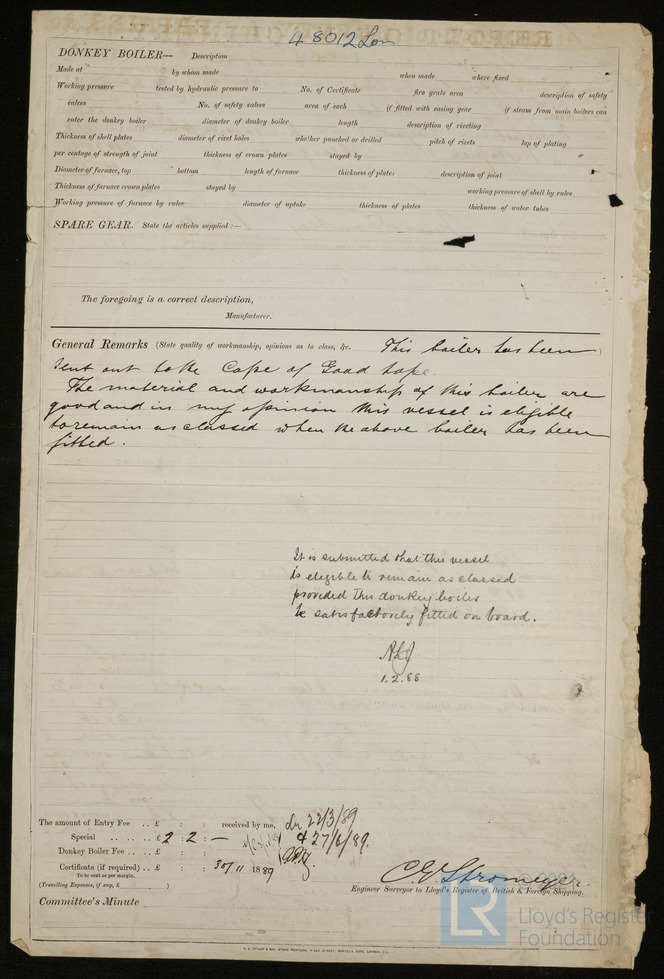 48012 Lon
DONKEY BOILER— Description
Made at by whom made when made where fixed
Working pressure tested by hydraulic pressure to No. of Certificate fire grate area description of safety
valves No. of safety valves area of each if fitted with easing gear if steam from main boilers can
enter the donkey boiler diameter of donkey boiler length description of riveting
Thickness of shell plates diameter of rivet holes whether punched or drilled pitch of rivets lap of plating
per centage of strength of joint thickness of crown plates stayed by
Diameter of furnace, top bottom length of furnace thickness of plates description of joint
Thickness of furnace crown plates stayed by working pressure of shell by rules
Working pressure of furnace by rules diameter of uptake thickness of plates thickness of water tubes
SPARE GEAR. State the articles supplied:—
The foregoing is a correct description,
Manufacturer.
General Remarks (State quality of workmanship, opinions as to class, &c. This boiler has been
sent out to the Cape of Good hope
The material and workmanship of this boiler are
good and in my opinion this vessel is eligible
to remain as classed when the above boiler has been
fitted.
It is submitted that this vessel
is eligible to remain as classed
provided this donkey boiler
be satisfactorily fitted on board.
1.2.88
The amount of Entry Fee .. £ : : received by me,
Special .. .. .. £ 2 : 2 : —
Donkey Boiler Fee .. .. £ : :
Certificate (if required) .. £ : : 30/11 1889
To be sent as per margin.
(Travelling Expenses, if any, £ )
22/3/89
Engineer Surveyor to Lloyd's Register of British & Foreign Shipping.
Committee's Minute
LR
Lloyd's Register
Foundation